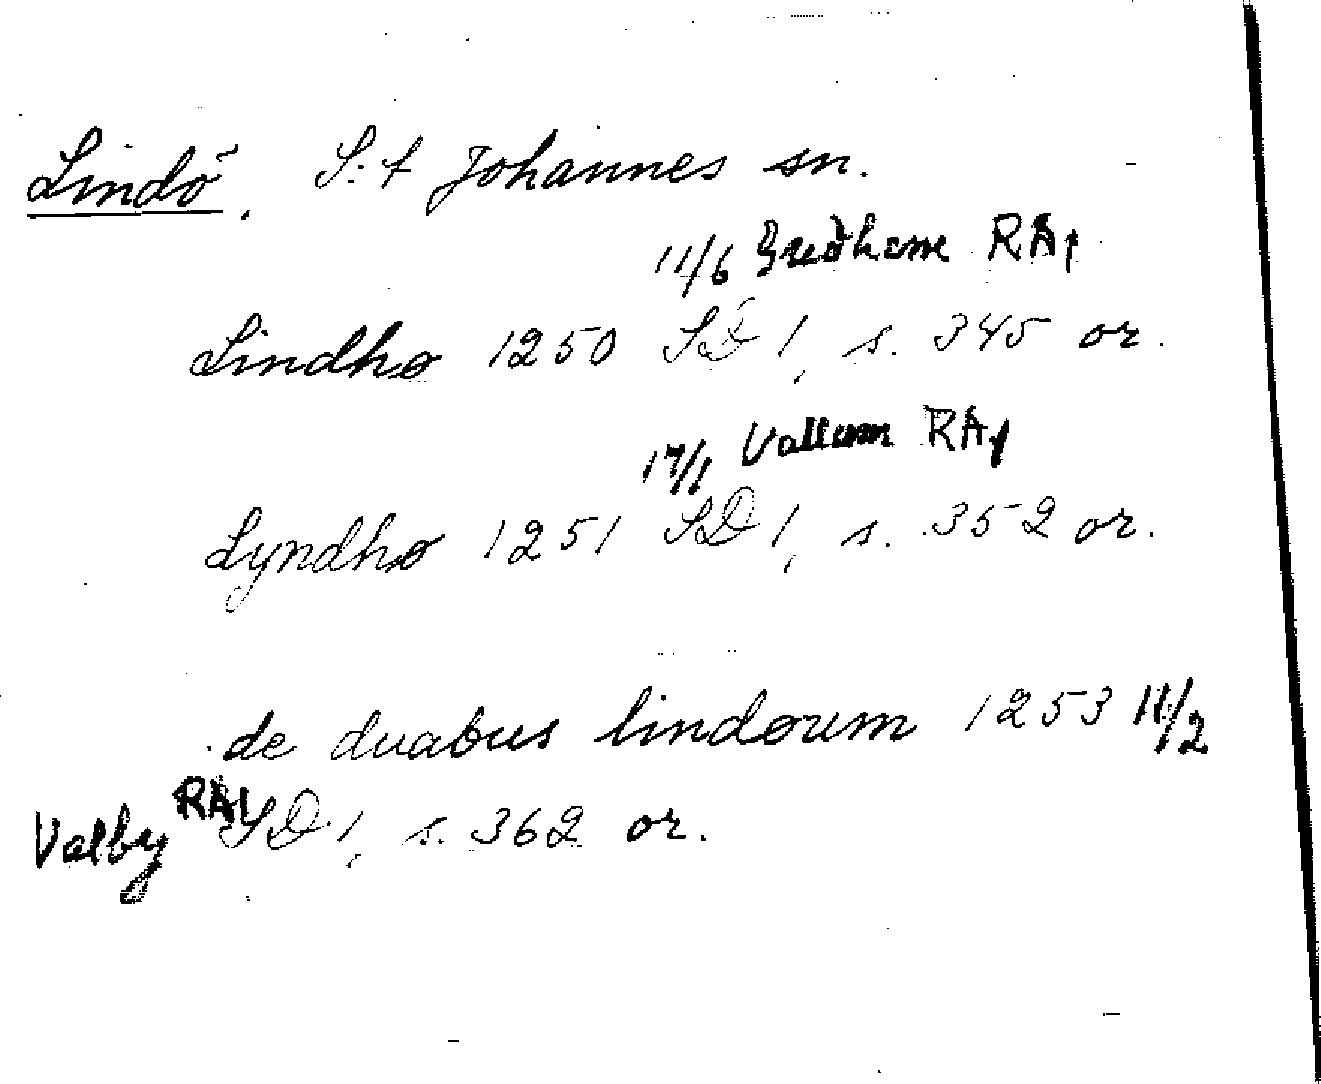 Lindö. S:t Johannes sn.
11/6 Gudhem RAp
Lindhø 1250 SD 1, s. 345 or.
17/1 Vallum RAp
Lyndhø 1251 SD 1, s. 352 or.
de duabus lindøum 1253 11/2
Valby RAp SD 1, s. 362 or.